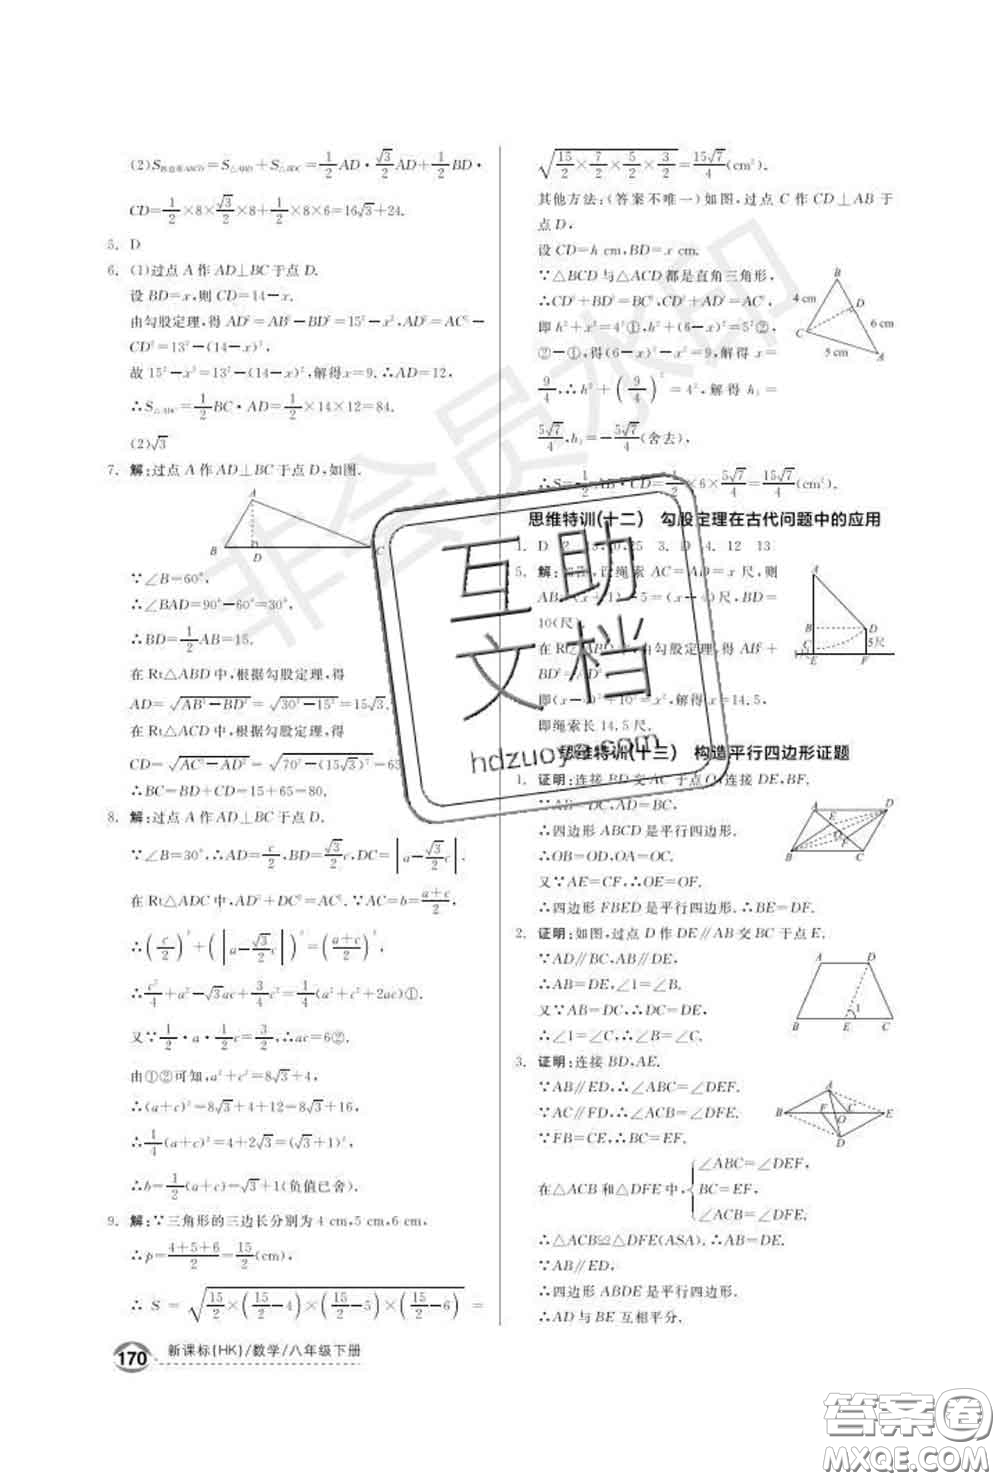 (2)S四边形ABCD=S△ABD+S△BDC=1/2 AD·√3/2 AD+1/2 BD·
CD=1/2×8×√3/2×8+1/2×8×6=16√3+24.
5. D
6. (1)过点A作AD⊥BC于点D.
设BD=x,则CD=14-x.
由勾股定理,得AD²=AB²-BD²=15²-x²,AD²=AC²-
CD²=13²-(14-x)²,
故15²-x²=13²-(14-x)²,解得x=9.∴AD=12,
∴S△ABC=1/2 BC·AD=1/2×14×12=84.
(2)√3
7. 解:过点A作AD⊥BC于点D,如图.
A
B D C
∵∠B=60°,
∴∠BAD=90°-60°=30°,
∴BD=1/2 AB=15.
在Rt△ABD中,根据勾股定理,得
AD=√(AB²-BD²)=√(30²-15²)=15√3.
在Rt△ACD中,根据勾股定理,得
CD=√(AC²-AD²)=√(70²-(15√3)²)=65
∴BC=BD+CD=15+65=80.
8. 解:过点A作AD⊥BC于点D.
∵∠B=30°,∴AD=c/2,BD=√3/2 c,DC=|a-√3/2 c|.
在Rt△ADC中,AD²+DC²=AC².∵AC=b=(a+c)/2,
∴(c/2)²+(|a-√3/2 c|)²=((a+c)/2)²
∴c²/4+a²-√3ac+3/4 c²=1/4(a²+c²+2ac)①.
又∵1/2·a·1/2 c=3/2,∴ac=6②.
由①②可知,a²+c²=8√3+4,
∴(a+c)²=8√3+4+12=8√3+16,
∴1/4(a+c)²=4+2√3=(√3+1)²,
∴b=1/2(a+c)=√3+1(负值已舍).
9. 解:∵三角形的三边长分别为4 cm,5 cm,6 cm,
∴p=(4+5+6)/2=15/2(cm),
∴S=√(15/2×(15/2-4)×(15/2-5)×(15/2-6))=
170 新课标(HK)/数学/八年级下册
√(15/2×7/2×5/2×3/2)=15√7/4(cm²).
其他方法:(答案不唯一)如图,过点C作CD⊥AB于
点D,
设CD=h cm,BD=x cm.
∵△BCD与△ACD都是直角三角形,
∴CD²+BD²=BC²,CD²+AD²=AC²,
即h²+x²=4²①,h²+(6-x)²=5²②,
②-①,得(6-x)²-x²=9,解得x=
9/4,∴h²+(9/4)²=4²,解得h₁=
5√7/4,h₂=-5√7/4(舍去),
∴S=1/2 AB·CD=1/2×6×5√7/4=15√7/4(cm²).
B
4 cm D
6 cm
C
5 cm A
思维特训(十二) 勾股定理在古代问题中的应用
1. D 2. 3. D 4. 12 13
5. 解:如图,设绳索AC=AD=x尺,则
AB=(x+1)-5=(x-4)尺,BD=
10(尺
在Rt△ 中,由勾股定理,得AB²+
BD²=AD²
即(x-4)²+10²=x²,解得x=14.5,
即绳索长14.5尺.
A
B D
C 5尺
1尺 E F
思维特训(十三) 构造平行四边形证题
1. 证明:连接BD交AC于点O,连接DE,BF.
∵AB=DC,AD=BC,
∴四边形ABCD是平行四边形.
∴OB=OD,OA=OC.
又∵AE=CF,∴OE=OF.
∴四边形FBED是平行四边形.∴BE=DF.
A D
E
O
F
B C
2. 证明:如图,过点D作DE∥AB交BC于点E.
∵AD∥BC,AB∥DE,
∴AB=DE,∠1=∠B.
又∵AB=DC,∴DC=DE.
∴∠1=∠C,∴∠B=∠C.
A D
1
B E C
3. 证明:连接BD,AE.
∵AB∥ED,∴∠ABC=∠DEF.
∵AC∥FD,∴∠ACB=∠DFE.
∵FB=CE,∴BC=EF.
在△ACB和△DFE中,{∠ABC=∠DEF,
BC=EF,
∠ACB=∠DFE.
∴△ACB≌△DFE(ASA).∴AB=DE.
∵AB∥ED,
∴四边形ABDE是平行四边形.
∴AD与BE互相平分.
A
B F C E
O
D
非会员水印
互助
文档
hdzuoye.com
答案卷
MXQE.COM